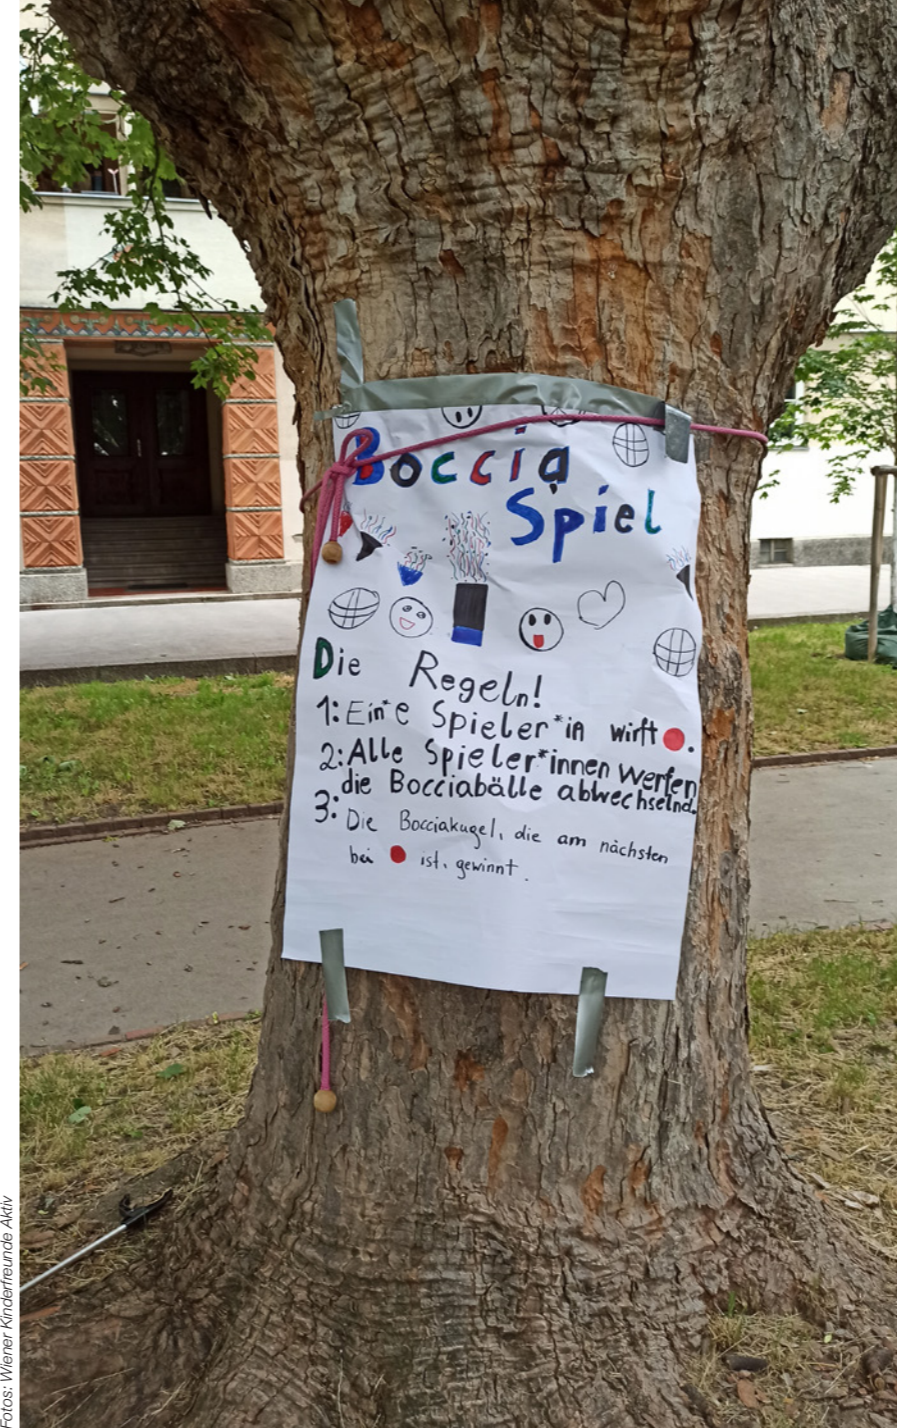 Boccia
Spiel
Die Regeln!
1: Ein*e Spieler*in wirft 🔴.
2: Alle Spieler*innen werfen
die Bocciabälle abwechselnd.
3: Die Bocciakugel, die am nächsten
bei 🔴 ist, gewinnt.
Fotos: Wiener Kinderfreunde Aktiv